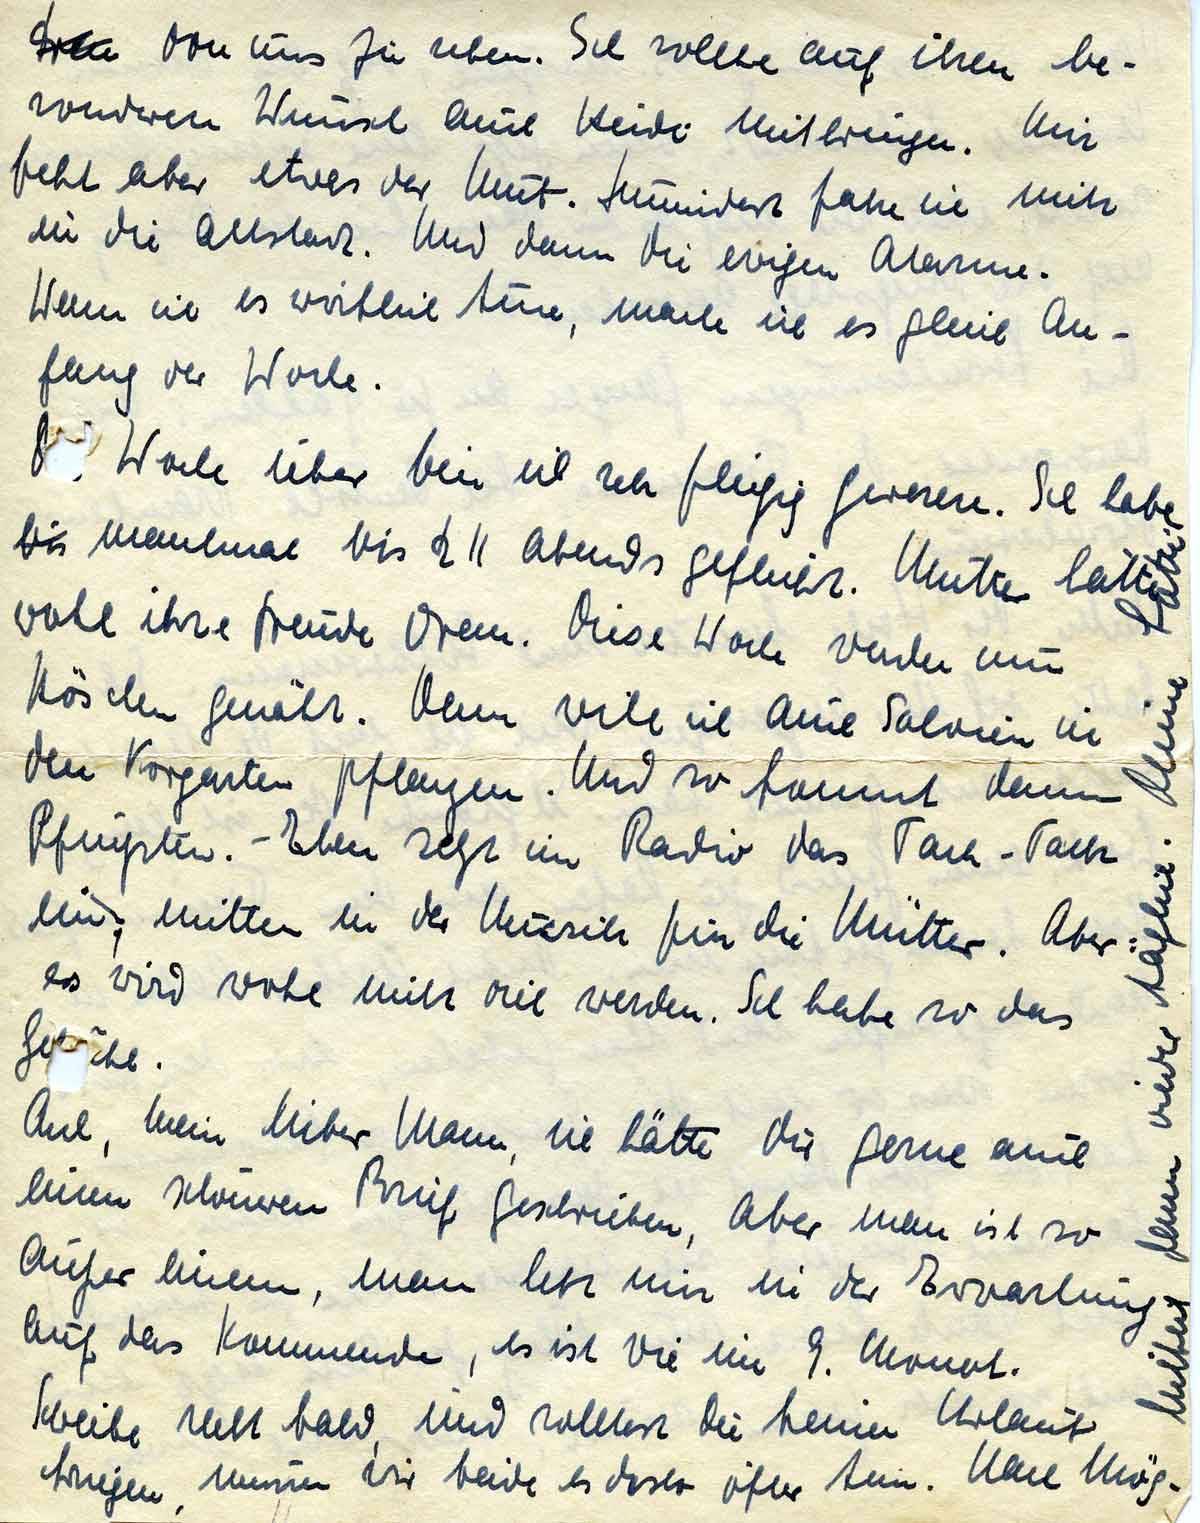 von uns zu sehen. Ich sollte auf ihren be-
sonderen Wunsch auch Heidi mitbringen. Mir
fehlt aber etwas der Mut. Zumindest fahre ich nicht
in die Altstadt. Und dann die ewigen Alarme.
Wenn ich es wirklich tue, mache ich es gleich An-
fang der Woche.
D Woche über bin ich sehr fleißig gewesen. Ich habe
bis manchmal bis ½ 11 Abends geflickt. Mutter hätte
wohl ihre Freude dran. Diese Woche werden nun
Höschen genäht. Dann will ich auch Salvien in
den Vorgarten pflanzen. Und so kommt dann
Pfingsten. - Eben setzt im Radio das Tack - Tack
ein, mitten in der Musik für die Mütter. Aber:
es wird wohl nicht viel werden. Ich habe so das
Gefühl.
Ach, mein lieber Mann, ich hätte Dir gerne auch
einen schönen Brief geschrieben, aber man ist so
außer einem, man lebt nur in der Erwartung
auf das Kommende, es ist wie im 9. Monat.
Schreibe recht bald, und solltest Du keinen Urlaub
kriegen, müssen wir beide es doch öfter tun. Nach Mög-
lichkeit dann wieder täglich. Deine